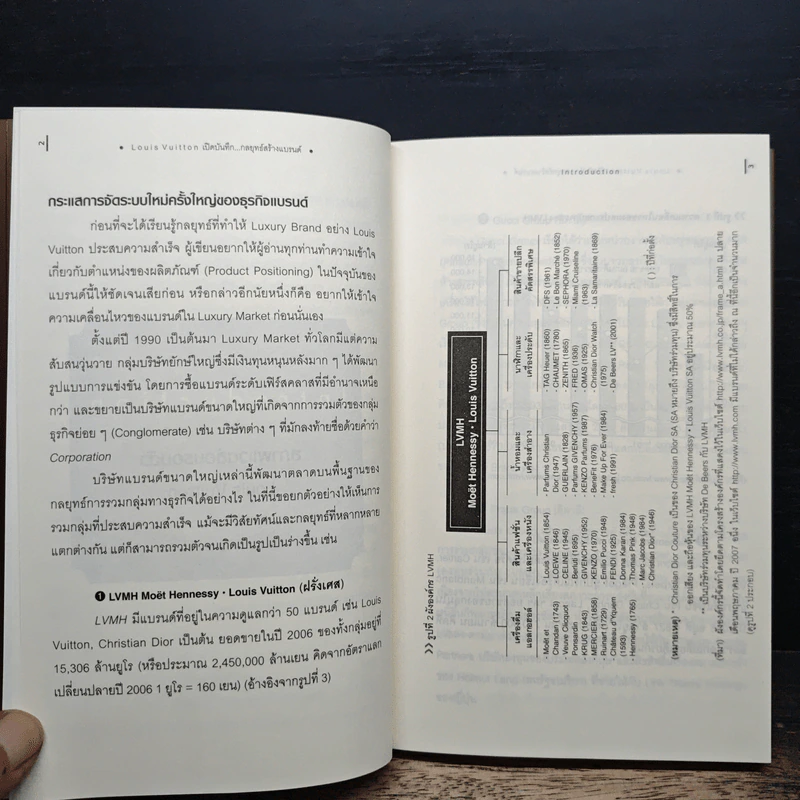 2
• Louis Vuitton เปิดบันทึก...กลยุทธ์สร้างแบรนด์ •
กระแสการจัดระบบใหม่ครั้งใหญ่ของธุรกิจแบรนด์
ก่อนที่จะได้เรียนรู้กลยุทธ์ที่ทำให้ Luxury Brand อย่าง Louis
Vuitton ประสบความสำเร็จ ผู้เขียนอยากให้ผู้อ่านทุกท่านทำความเข้าใจ
เกี่ยวกับตำแหน่งของผลิตภัณฑ์ (Product Positioning) ในปัจจุบันของ
แบรนด์นี้ให้ชัดเจนเสียก่อน หรือกล่าวอีกนัยหนึ่งก็คือ อยากให้เข้าใจ
ความเคลื่อนไหวของแบรนด์ใน Luxury Market ก่อนนั่นเอง
ตั้งแต่ปี 1990 เป็นต้นมา Luxury Market ทั่วโลกมีแต่ความ
สับสนวุ่นวาย กลุ่มบริษัทยักษ์ใหญ่ซึ่งมีเงินทุนหนุนหลังมาก ๆ ได้พัฒนา
รูปแบบการแข่งขัน โดยการซื้อแบรนด์ระดับเฟิร์สคลาสที่มีอำนาจเหนือ
กว่า และขยายเป็นบริษัทแบรนด์ขนาดใหญ่ที่เกิดจากการรวมตัวของกลุ่ม
ธุรกิจย่อย ๆ (Conglomerate) เช่น บริษัทต่าง ๆ ที่มักลงท้ายชื่อด้วยคำว่า
Corporation
บริษัทแบรนด์ขนาดใหญ่เหล่านี้พัฒนาตลาดบนพื้นฐานของ
กลยุทธ์การรวมกลุ่มทางธุรกิจได้อย่างไร ในที่นี้ขอยกตัวอย่างให้เห็นการ
รวมกลุ่มที่ประสบความสำเร็จ แม้จะมีวิสัยทัศน์และกลยุทธ์ที่หลากหลาย
แตกต่างกัน แต่ก็สามารถรวมตัวจนเกิดเป็นรูปเป็นร่างขึ้น เช่น
❶ LVMH Moët Hennessy • Louis Vuitton (ฝรั่งเศส)
LVMH มีแบรนด์ที่อยู่ในความดูแลกว่า 50 แบรนด์ เช่น Louis
Vuitton, Christian Dior เป็นต้น ยอดขายในปี 2006 ของทั้งกลุ่มอยู่ที่
15,306 ล้านยูโร (หรือประมาณ 2,450,000 ล้านเยน คิดจากอัตราแลก
เปลี่ยนปลายปี 2006 1 ยูโร = 160 เยน) (อ้างอิงจากรูปที่ 3)
Introduction
3
รูปที่ 2 ผังองค์กร LVMH
LVMH
Moët Hennessy • Louis Vuitton
เครื่องดื่ม
แอลกอฮอล์
- Moët et
Chandon (1743)
- Veuve Clicquot
Ponsardin
- KRUG (1843)
- MERCIER (1858)
- Ruinart (1729)
- Château d'Yquem
(1593)
- Hennessy (1765)
สินค้าแฟชั่น
และเครื่องหนัง
- Louis Vuitton (1854)
- LOEWE (1846)
- CELINE (1945)
- Berluti (1895)
- GIVENCHY (1952)
- KENZO (1970)
- Emilio Pucci (1948)
- FENDI (1925)
- Donna Karan (1984)
- Thomas Pink (1984)
- Marc Jacobs (1984)
- Christian Dior* (1946)
น้ำหอมและ
เครื่องสำอาง
- Parfums Christian
Dior (1947)
- GUERLAIN (1828)
- Parfums GIVENCHY (1957)
- KENZO Parfums (1987)
- BeneFit (1976)
- Make Up For Ever (1984)
- fresh (1991)
นาฬิกาและ
เครื่องประดับ
- TAG Heuer (1860)
- CHAUMET (1780)
- ZENITH (1865)
- FRED (1936)
- OMAS (1925)
- Christian Dior Watch
(1975)
- De Beers LV** (2001)
สินค้าขายปลีก
คัดสรรพิเศษ
- DFS (1961)
- Le Bon Marché (1852)
- SEPHORA (1970)
- Miami Cruiseline
(1963)
- La Samaritaine (1869)
( ) : ปีที่ก่อตั้ง
(หมายเหตุ) * Christian Dior Couture เป็นของ Christian Dior SA (SA หมายถึง บริษัทร่วมทุน) ซึ่งมีสิทธิ์ในการ
ออกเสียง และถือหุ้นของ LVMH Moët Hennessy • Louis Vuitton SA อยู่ประมาณ 50%
** เป็นบริษัทร่วมทุนระหว่างบริษัท De Beers กับ LVMH
(ที่มา) ผังองค์กรนี้จัดทำโดยยึดตามโครงสร้างองค์กรที่แสดงไว้ในเว็บไซต์ http://www.lvmh.co.jp/frame_a.html ณ ปลาย
เดือนพฤษภาคม ปี 2007 อนึ่ง ในเว็บไซต์ http://www.lvmh.com มีแบรนด์ที่ไม่ได้กล่าวถึง ณ ที่นี้อีกเป็นจำนวนมาก
(ดูรูปที่ 2 ประกอบ)